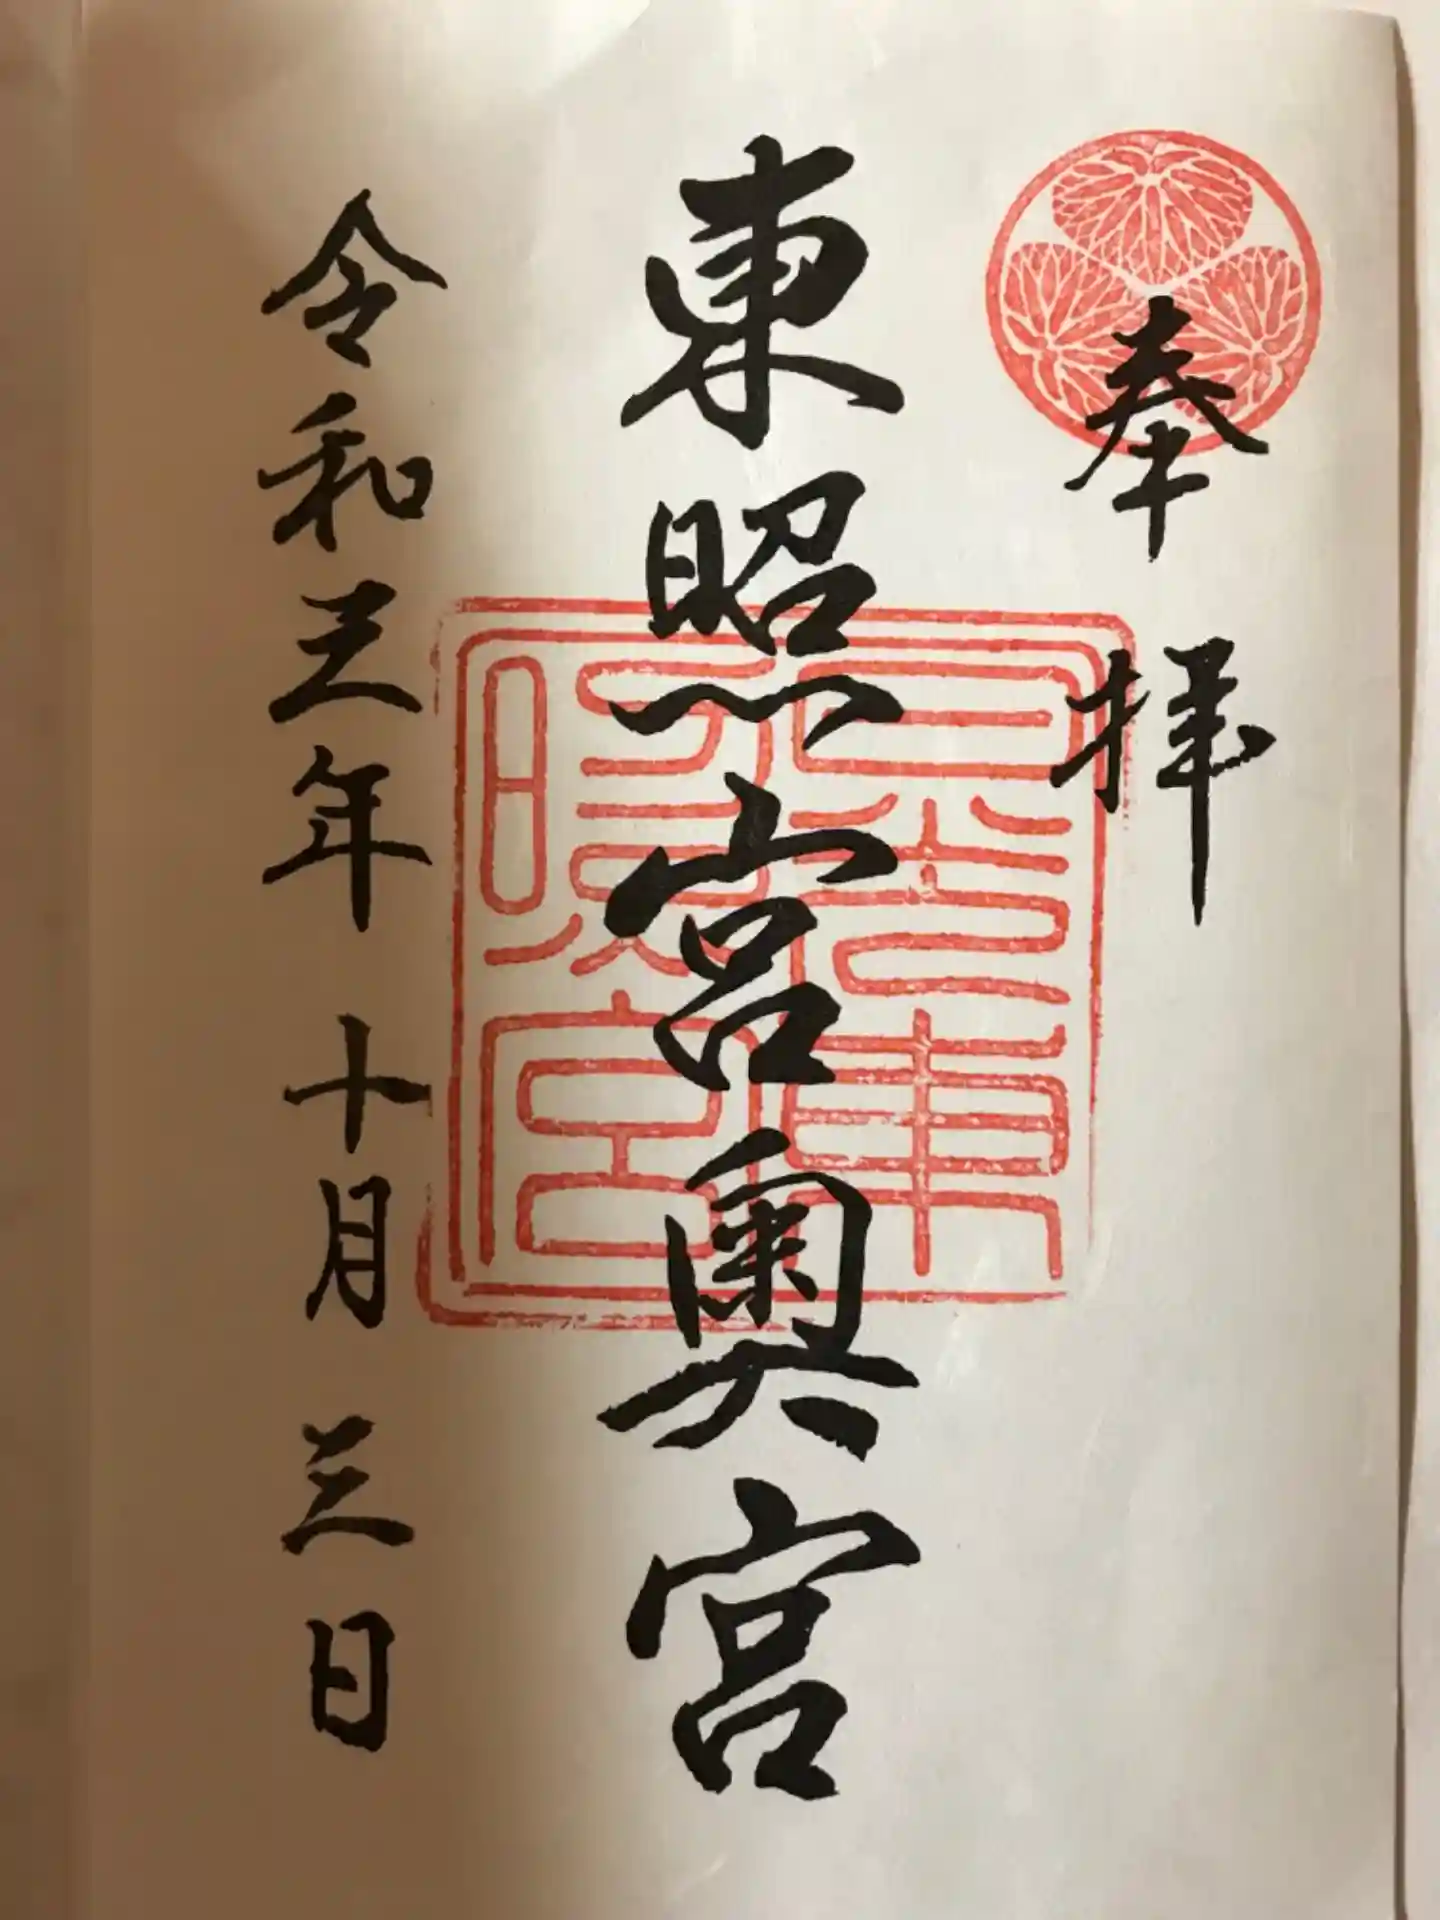 奉拝
東照宮奥宮
令和三年十月三日
日光東照宮